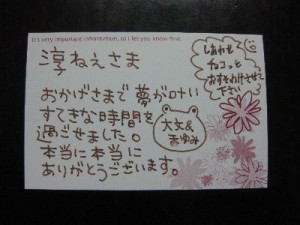 It's very important information, so i let you know first.
淳ねえさま
おかげさまで夢がかない
すてきな時間を
過ごせました。
本当に本当に
ありがとうございます。
しあわせ
チョコッと
おすそわけさせて
下さい
大文&
まゆみ